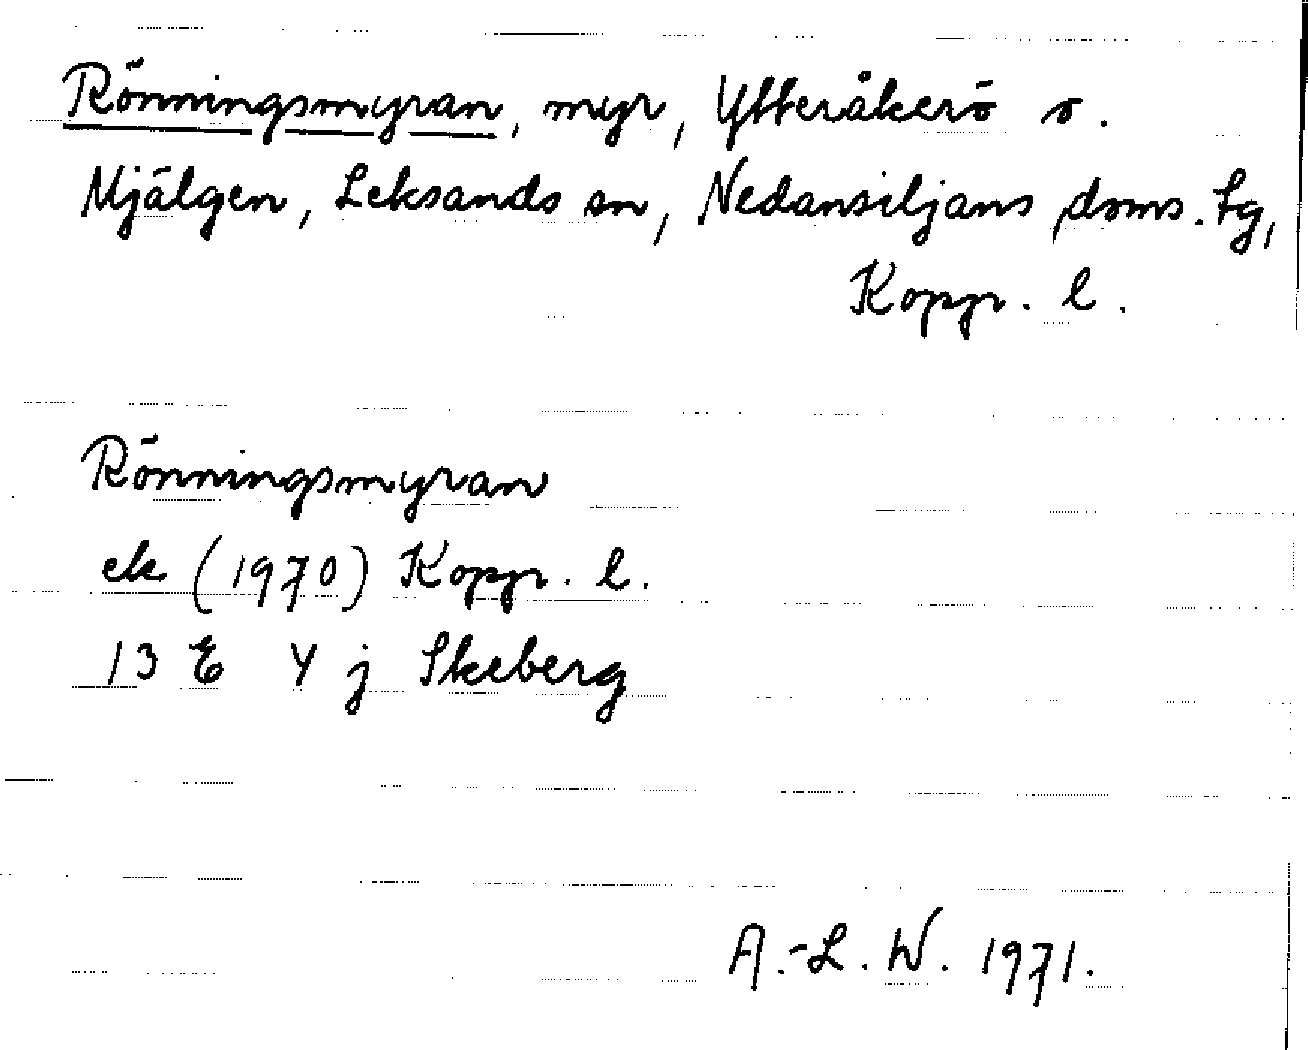 Rönningsmyran, myr, Ytteråkerö s.
Mjälgen, Leksands sn, Nedansiljans doms. tg,
Kopp. l.
Rönningsmyran
ek (1970) Kopp. l.
13 E Y j Skeberg
A.-L. W. 1971.